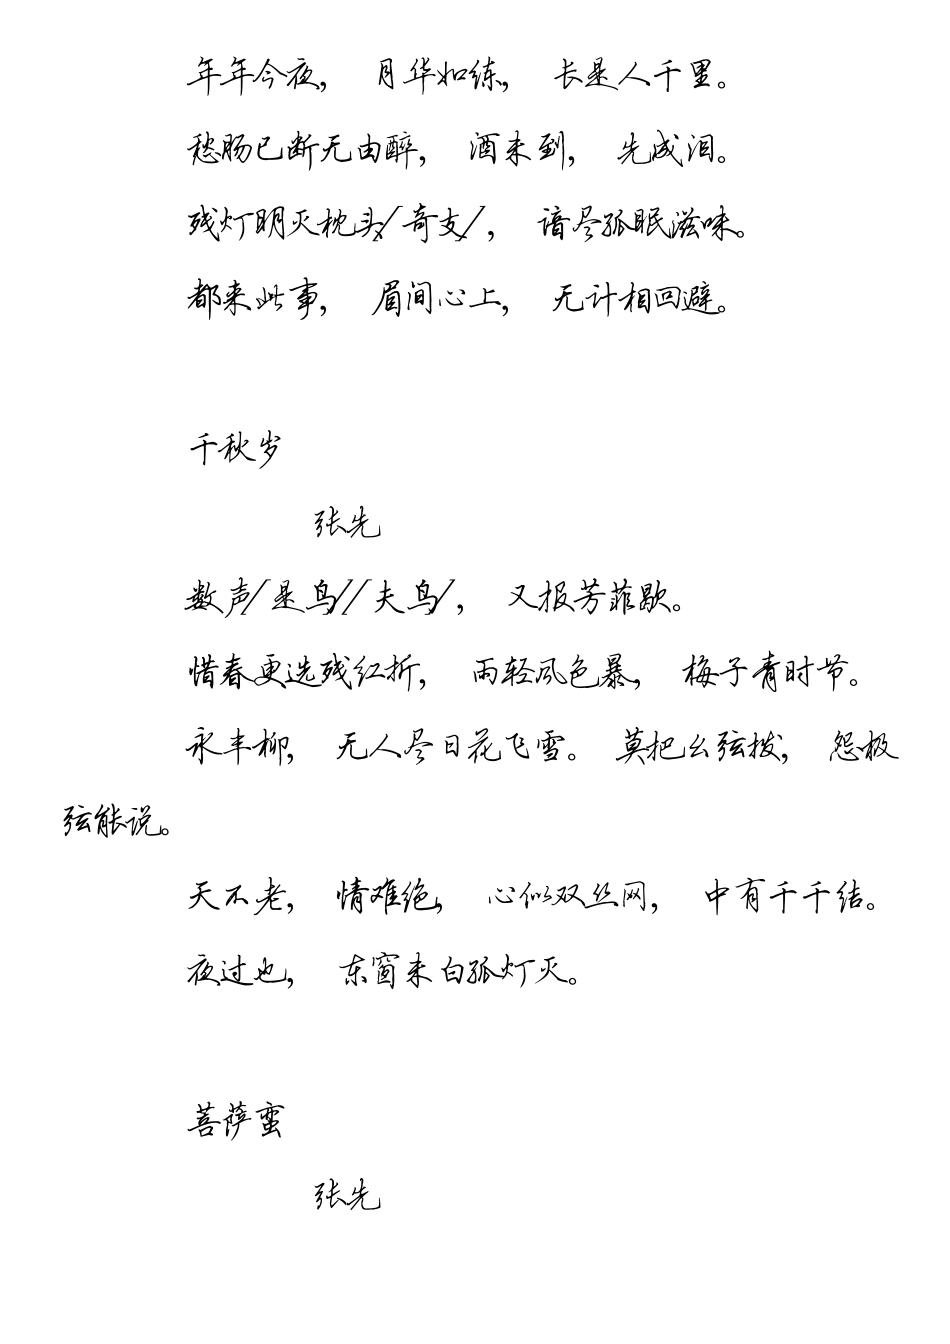 年年今夜, 月华如练, 长是人千里。
愁肠已断无由醉, 酒未到, 先成泪。
残灯明灭枕头/奇支/, 谙尽孤眠滋味。
都来此事, 眉间心上, 无计相回避。
千秋岁
张先
数声/是鸟//夫鸟/, 又报芳菲歇。
惜春更选残红折, 雨轻风色暴, 梅子青时节。
永丰柳, 无人尽日花飞雪。 莫把幺弦拨, 怨极
弦能说。
天不老, 情难绝, 心似双丝网, 中有千千结。
夜过也, 东窗未白孤灯灭。
菩萨蛮
张先